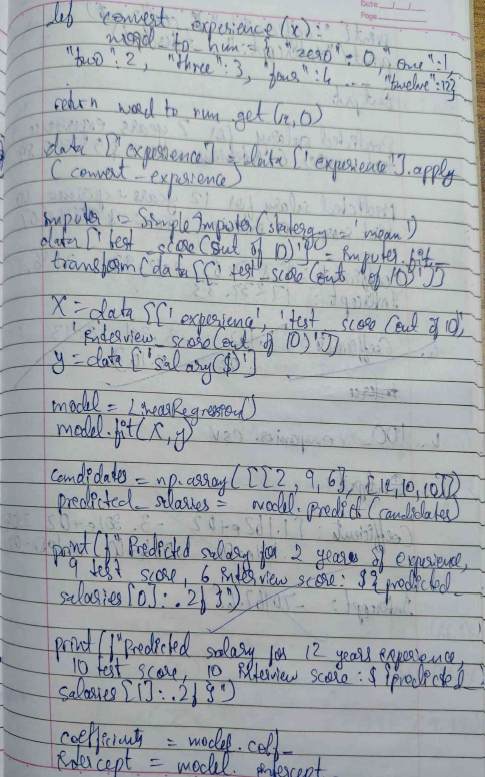 Date
Page
def convert experience (x):
word_to_num = {"zero" = 0, "one":1,
"two":2, "three":3, "four":4 ... "twelve":12}
return word to num.get(x,0)
data ['experience'] = data ['experience'].apply
(convert_experience)
imputer = SimpleImputer(strategy='mean')
data ['test_score(out of 10)'] = imputer.fit_
transform (data [['test_score(out of 10)']])
X = data [['experience', 'test_score (out of 10)',
'interview_score(out of 10)']]
y = data ['salary($)']
model = LinearRegression()
model.fit (X, y)
candidates = np.array ([[2, 9, 6], [12,10,10]])
predicted_salaries = model.predict (candidates)
print(f"Predicted salary for 2 years of experience,
9 test score, 6 interview score: ${predicted_
salaries [0]:.2f}")
print (f"predicted salary for 12 years experience,
10 test score, 10 interview score: ${predicted_
salaries [1]:.2f}")
coefficients = model.coef_
intercept = model.intercept_